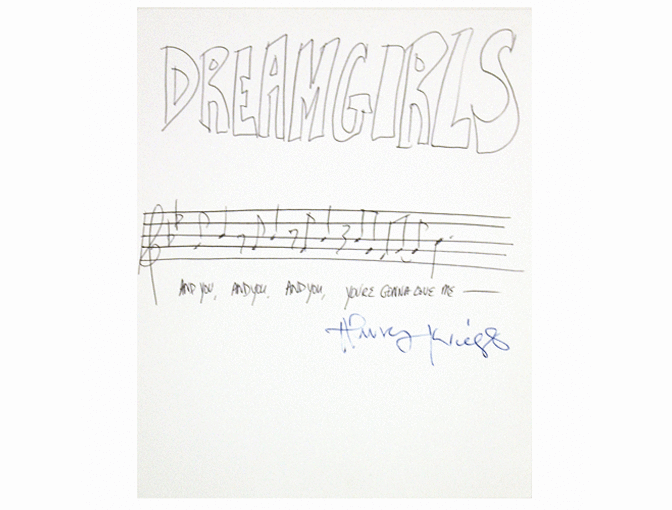 DREAMGIRLS
AND YOU, AND YOU, AND YOU, YOU'RE GONNA LOVE ME
Henry Krieger